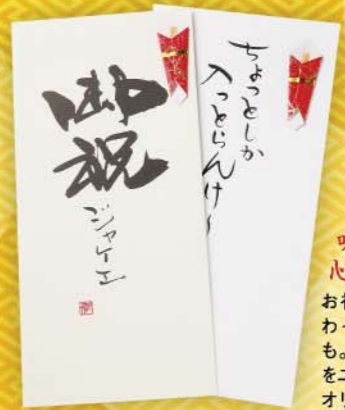 御祝
ジャケエ
ちょっとしか
入っとらんけ〜
心
お祝
わっ
も。
をユ
オリ